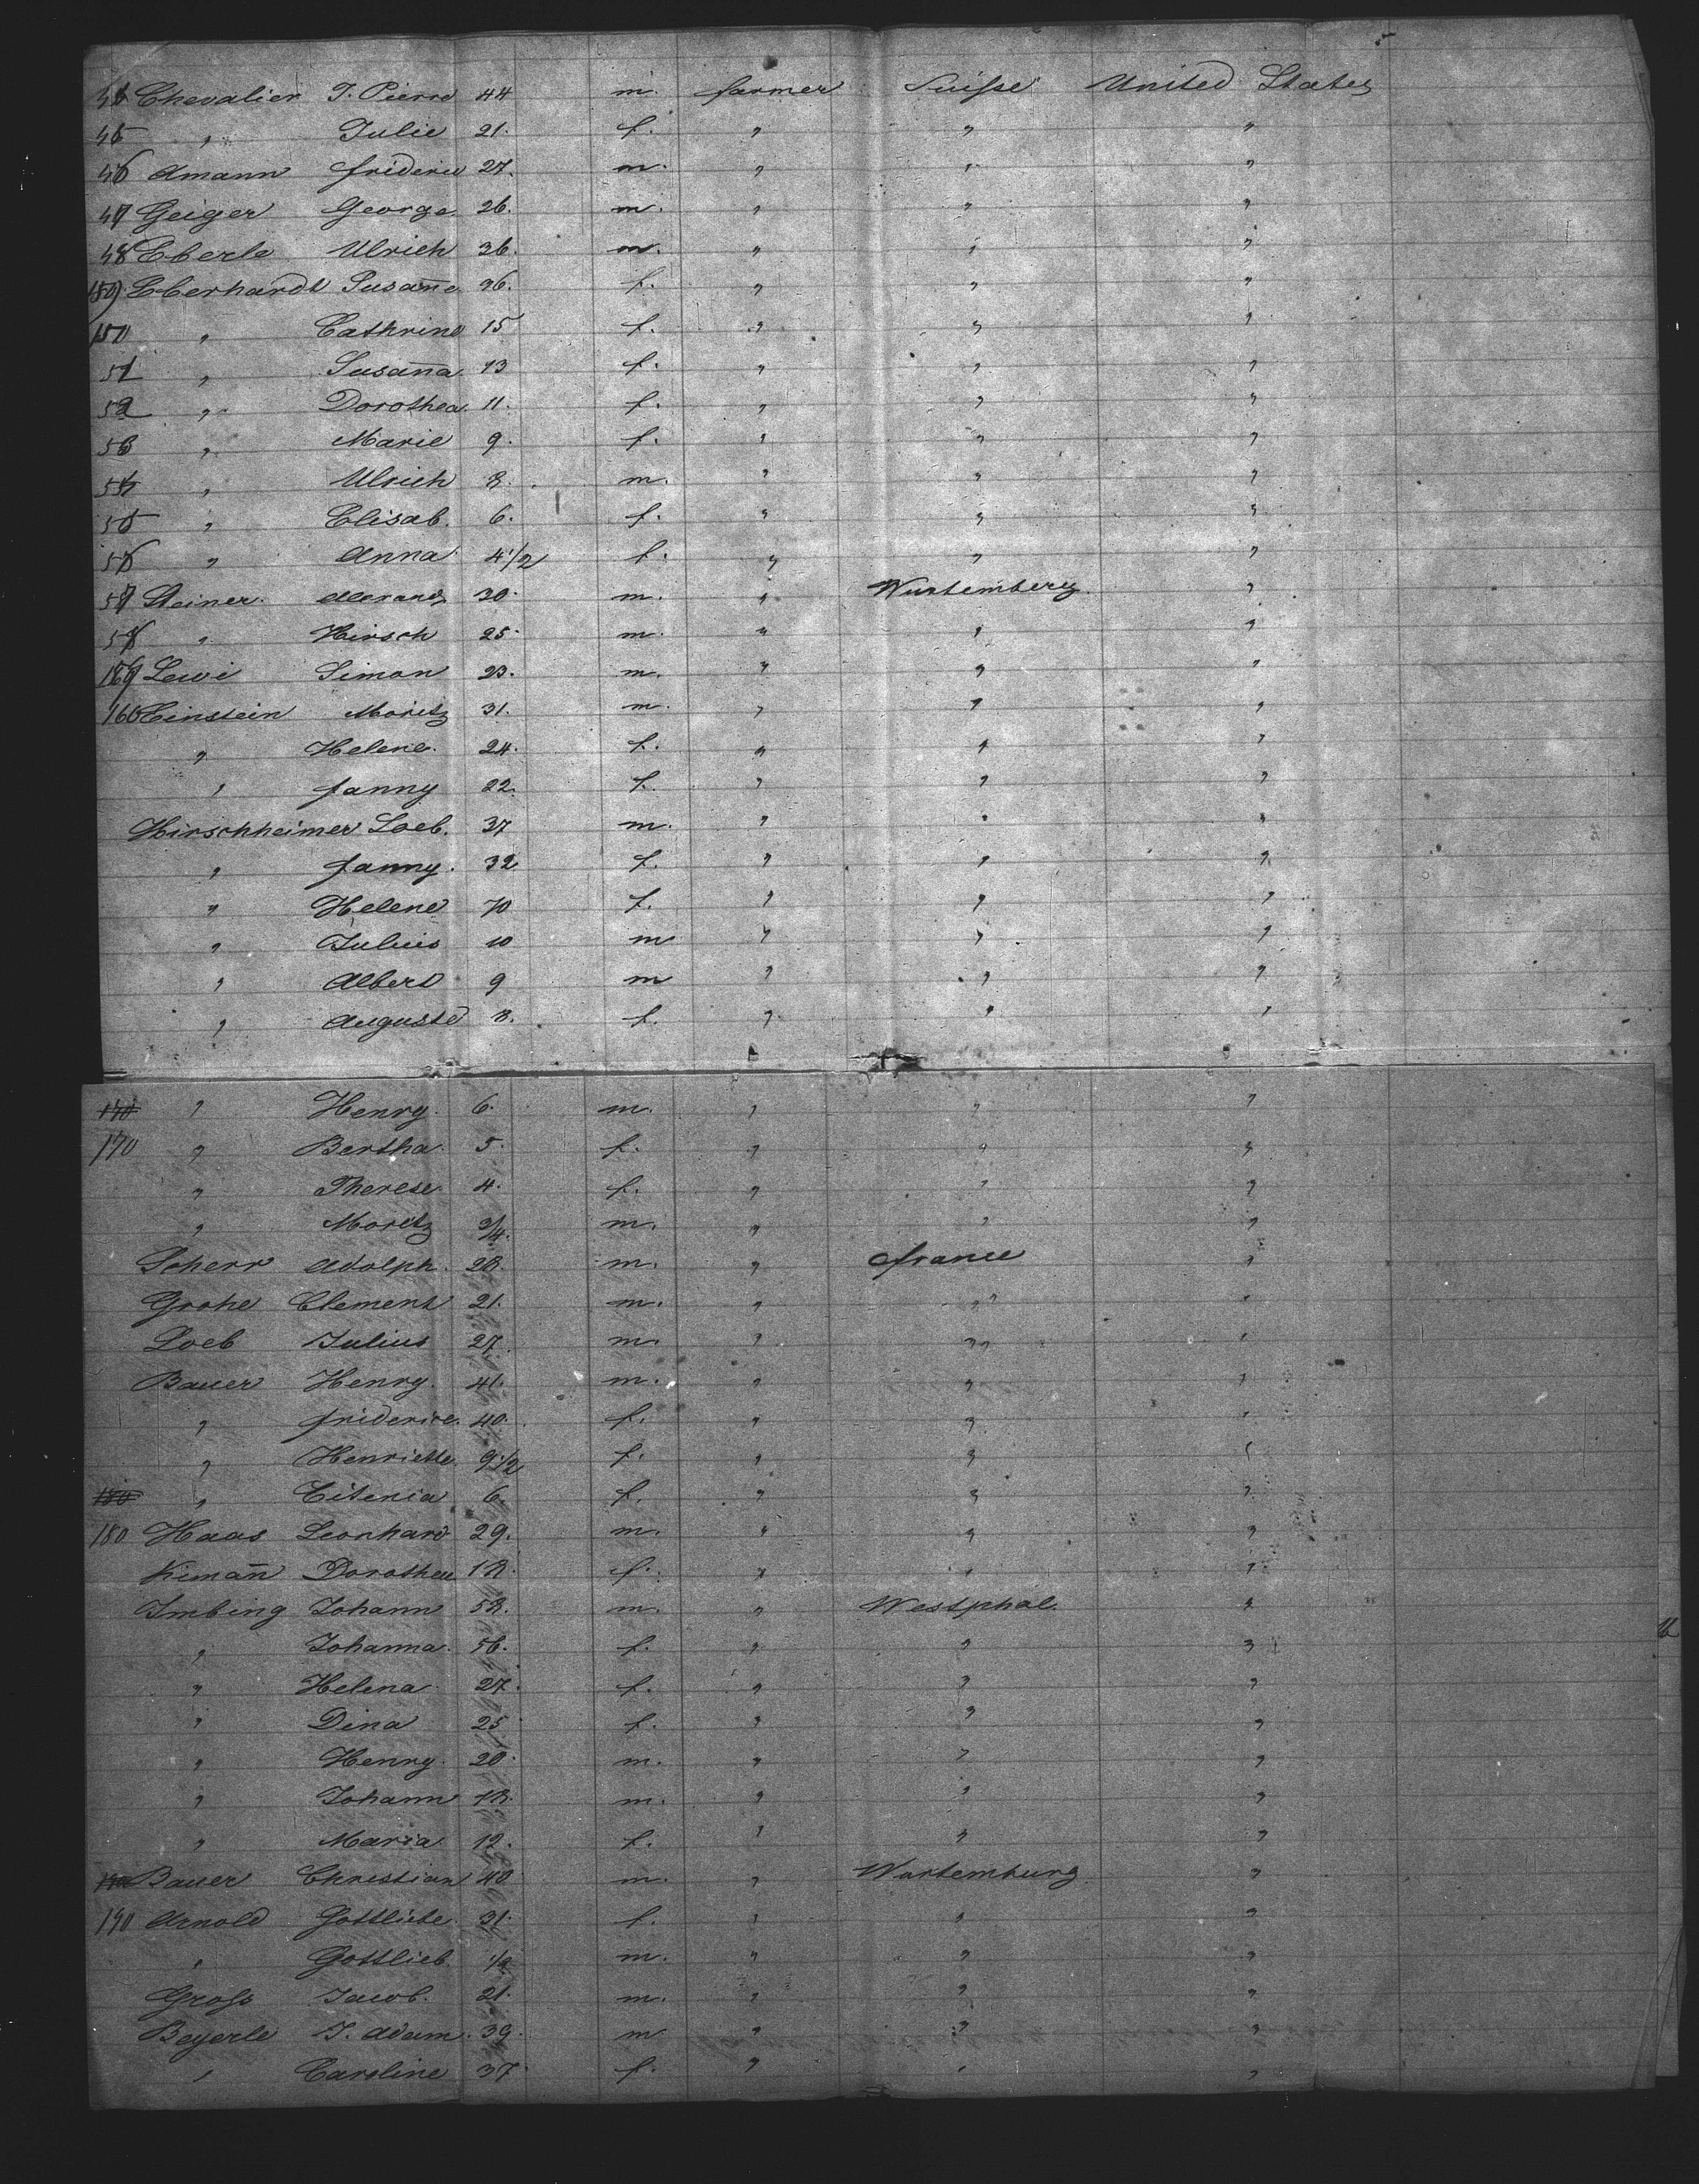 Chevalier J. Pierre 44 m. farmer Suisse United States
45 " Julie 21. f. " " "
46 Amann frideric 27. m. " " "
47 Geiger George 26. m. " " "
48 Eberle Ulrich 36. m. " " "
Eberhardt Susan̄e 36. f. " " "
150 " Cathrine 15 f. " " "
51 " Susan̄a 13 f. " " "
52 " Dorothea 11. f. " " "
53 " Marie 9. f. " " "
54 " Ulrich 8. m. " " "
55 " Elisab. 6. f. " " "
56 " Anna 4 1/2 f. " " "
57 Steiner 30. m. " Wurtemberg "
58 " Hirsch 25. m. " " "
159 Lewi Simon 23. m. " " "
160 Einstein Moritz 31. m. " " "
" Helene. 24. f. " " "
" fanny 22. f. " " "
Hirschheimer Loeb. 37 m. " " "
" fanny. 32 f. " " "
" Helene 70 f. " " "
" Julius 10 m " " "
" Albert 9 m " " "
" Auguste 8. f. " " "
170 " Henry. 6. m. " " "
170 " Bertha. 5. f. " " "
" Therese. 4. f. " " "
" Moritz 3/4. m. " " "
Scherr Adolph. 28. m. " france "
Grohe Clement 21. m. " " "
Loeb Julius 27. m. " " "
Bauer Henry. 41. m. " " "
" friderice. 40. f. " " "
" Henriette. 9 1/2 f. " " "
180 " 6. f. " " "
180 Haas Leonhard 29. m. " " "
Kiman̄ Dorothea 18. f. " " "
Imbing Johann 58. m. " Westphal. "
" Johanna. 56. f. " " "
" Helena. 27. f. " " "
" Dina 25. f. " " "
" Henry. 20. m. " " "
" Johann 18. m. " " "
" Maria 12. f. " " "
190 Bauer Christian 40 m. " Wurtemburg "
190 Arnold Gottliebe 31. f. " " "
" Gottlieb. m. " " "
Gross Jacob. 21. m. " " "
Beyerle J. Adam. 39. m " " "
" Caroline 37. f. " " "